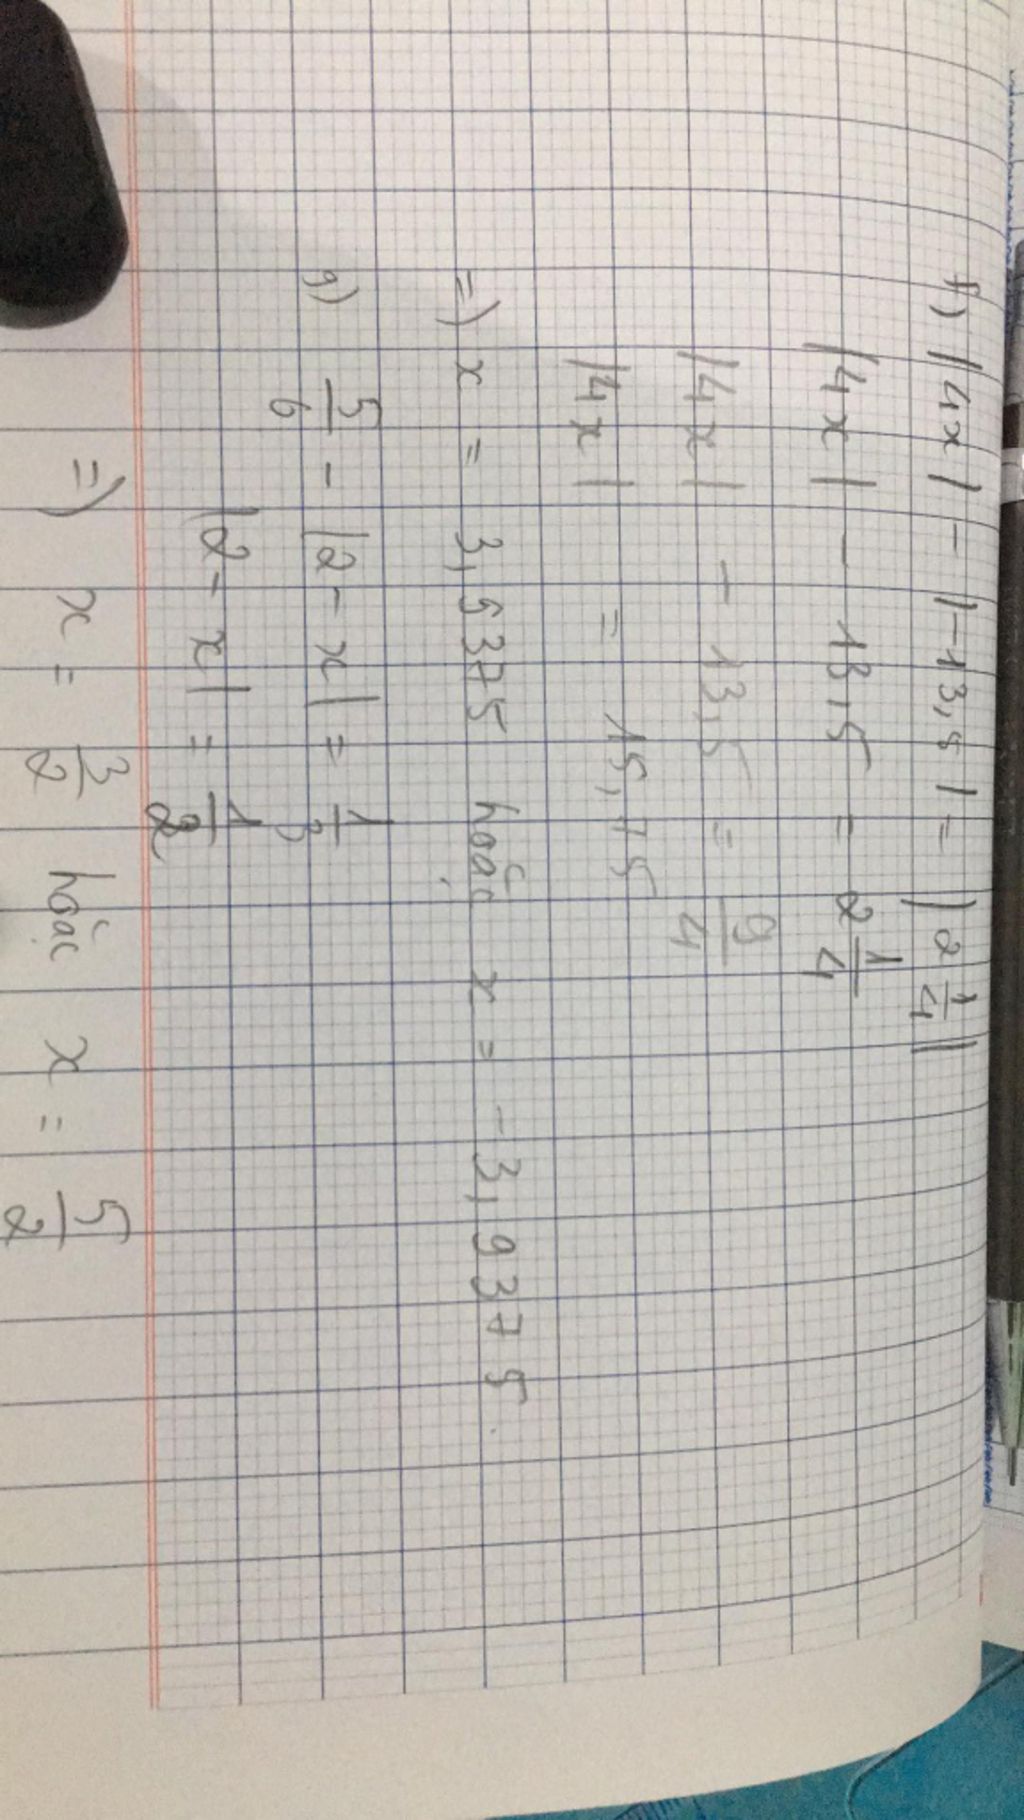 f) |4x| - |-13,5| = |2 1/4|
|4x| - 13,5 = 2 1/4
|4x| - 13,5 = 9/4
|4x| = 15,75
=) x = 3,9375 hoặc x = -3,9375.
g) 5/6 - |2 - x| = 1/3
|2 - x| = 1/2
=) x = 3/2 hoặc x = 5/2